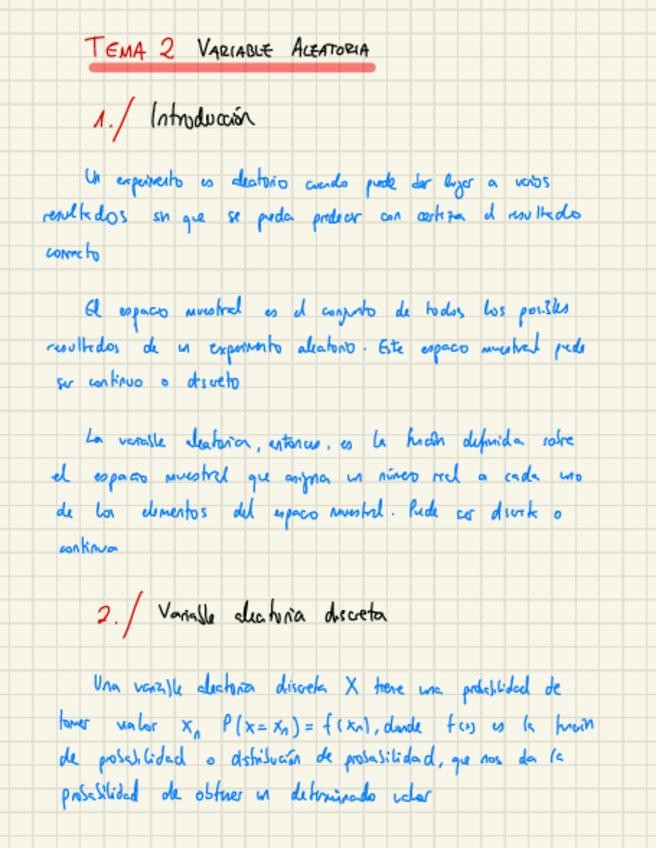 TEMA 2 VARIABLE ALEATORIA
1./ Introducción
Un experimento es aleatorio cuando puede dar lugar a varios
resultados sin que se pueda predecir con certeza el resultado
correcto
El espacio muestral es el conjunto de todos los posibles
resultados de un experimento aleatorio. Este espacio muestral puede
ser continuo o discreto
La variable aleatoria, entonces, es la función definida sobre
el espacio muestral que asigna un número real a cada uno
de los elementos del espacio muestral. Puede ser discreta o
continua
2./ Variable aleatoria discreta
Una variable aleatoria discreta X tiene una probabilidad de
tomar valor xₙ P(x=xₙ) = f(xₙ), donde f(x) es la función
de probabilidad o distribución de probabilidad, que nos da la
probabilidad de obtener un determinado valor